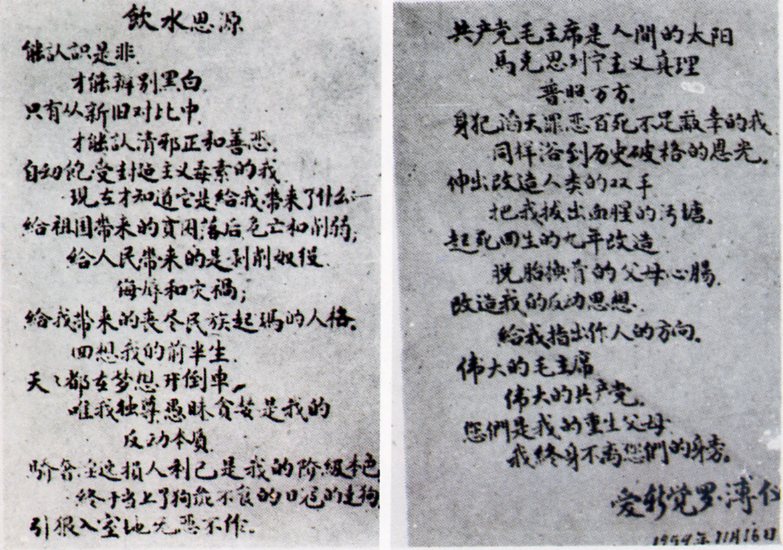 飲水思源
能認识是非
才能辨别黑白
只有从新旧对比中
才能認清邪正和善恶.
自动饱受封建主义毒素的我
現在才知道它是給我帶来了什么—
給祖国帶来的貧困落后危亡和削弱;
給人民帶来的是剥削奴役
侮辱和灾禍;
給我帶来的丧尽民族起碼的人格.
回想我的前半生.
天々都在梦想开倒車,
唯我独尊愚昧貪婪是我的
反动本质
骄奢淫逸損人利己是我的阶級本色
終于当上了狗彘不食的日寇的走狗
引狼入室地无恶不作.
共产党毛主席是人間的太阳
馬克思列宁主义真理
普照万方.
身犯滔天罪恶百死不足蔽辜的我
同样浴到历史破格的恩光.
伸出改造人类的双手
把我拔出血腥的污塘.
起死回生的九年改造
脱胎換骨的父母心腸.
改造我的反动思想.
給我指出作人的方向.
伟大的毛主席
伟大的共产党.
您們是我的重生父母
我終身不离您們的身旁.
爱新觉罗·溥
195 年 11月16日